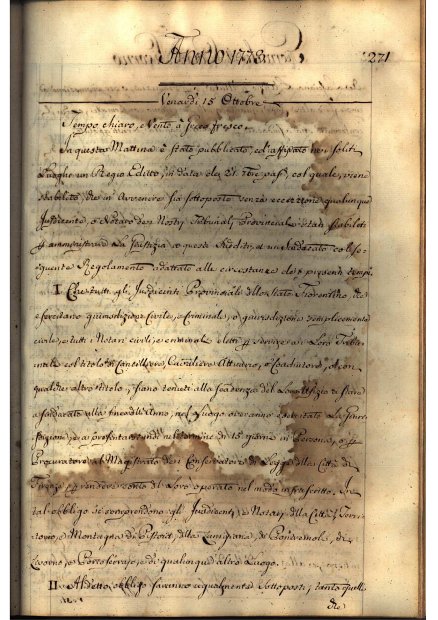 Anno 1778
271
Venerdì 15 Ottobre
Tempo chiaro, e Vento a fresco.
In questa Mattina è stato pubblicato, ed affissato nei soliti
Luoghi un Regio Editto, in data de 21. col quale, viene
stabilito, che in Avvenire sia sottoposto senza eccezione qualunque
Jusdicente, o Notaro dei Nostri Tribunali Provinciali
amministrare La Giustizia a questi Sudditi, ad un Sindacato col se-
guente Regolamento adattato alle circostanze dei presenti tempi.
I. Che tutti gli Jusdicenti Provinciali dello Stato Fiorentino, che
esercitano giurisdizione Civile, e Criminale, o giurisdizione semplicemente
civile, e tutti i Notari civili, e criminali eletti servire i Loro Tribu-
nali col titolo di Cancelliere, Attuario, o Coadiutore, o con
qualche altro titolo, siano tenuti alla scadenza del Loro Ufizio
alla fine dell'Anno, nel Luogo avranno esercitato La Giuris-
dizione, a presentarsi nel termine di 15 giorni in Persona, o
Procuratore al Magistrato dei Conservatori di Legge della Città di
Firenze rendere conto di Loro operato nel modo infrascritto. In
tal obbligo si comprendono gli Jusdicenti, e Notari della Città, Terri-
torio, e Montagna di Pistoia, della Lunigiana, di Pontremoli, di
Livorno, e Portoferrajo, e di qualunque altro Luogo.
II. Al detto obbligo saranno egualmente sottoposti, tanto quelli
che